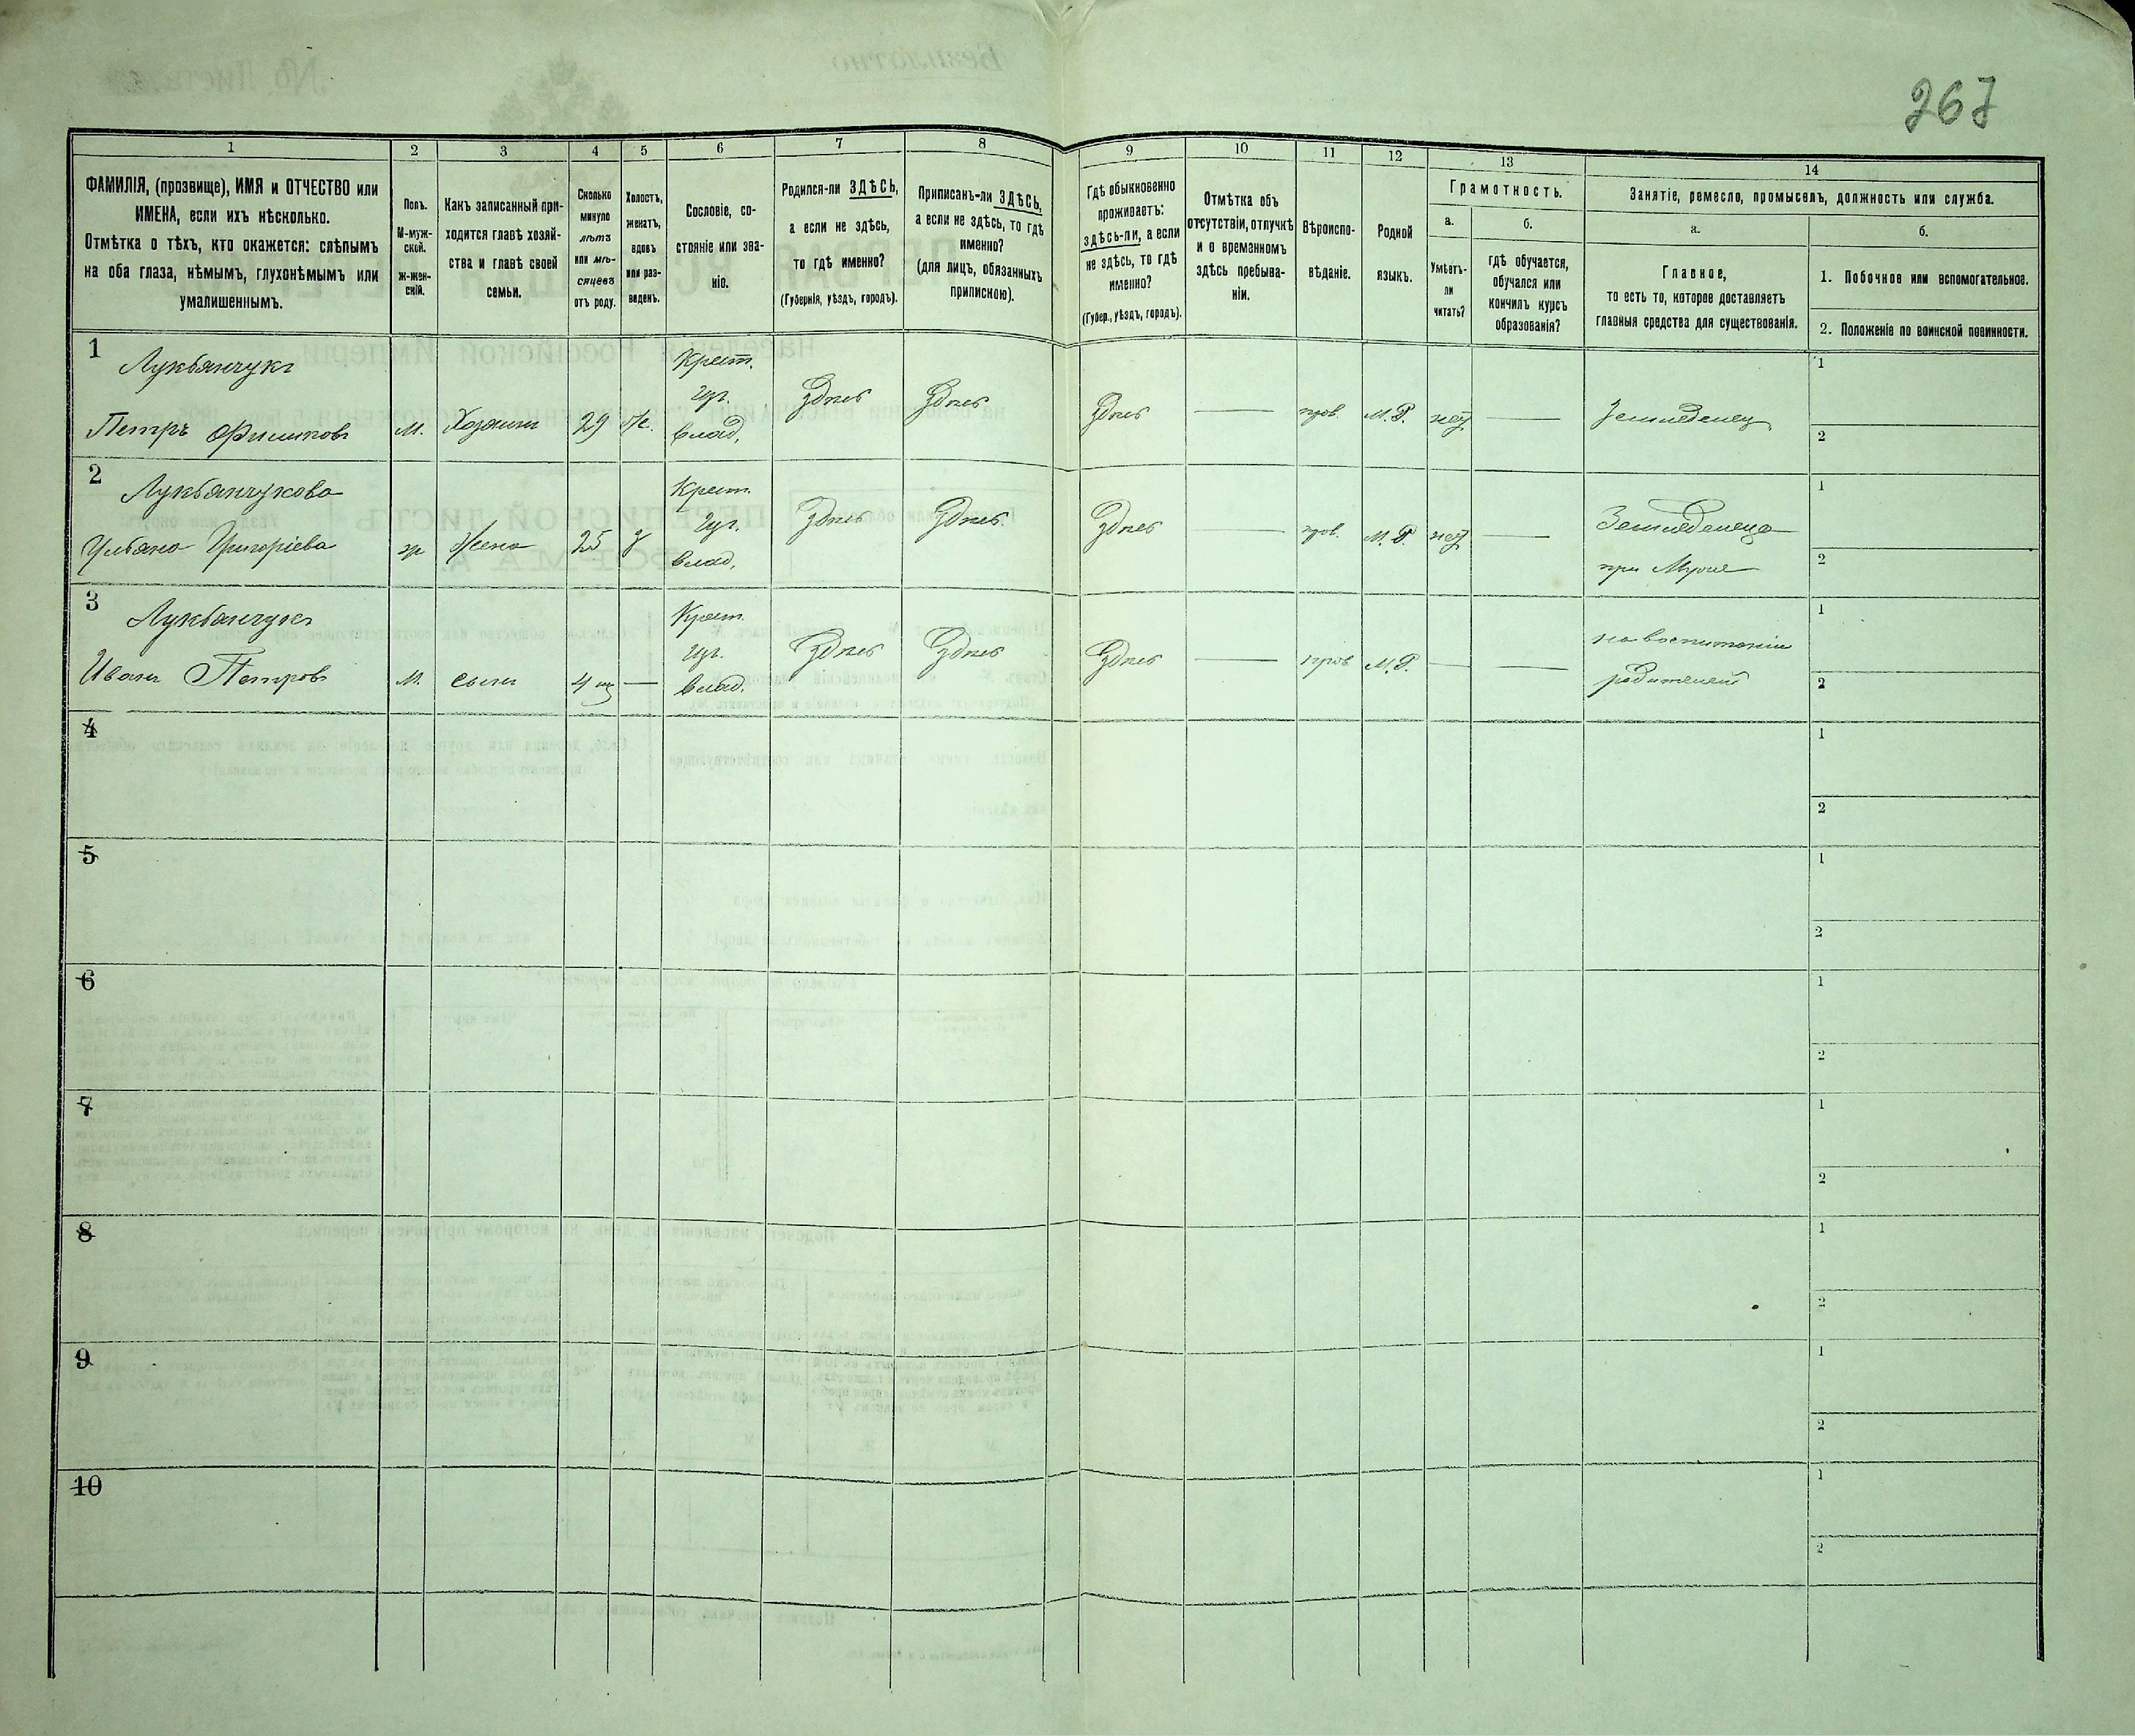 267
1 2 3 4 5 6 7 8 9 10 11 12 13 14
ФАМИЛІЯ, (прозвище), ИМЯ и ОТЧЕСТВО или
ИМЕНА, если ихъ нѣсколько.
Отмѣтка о тѣхъ, кто окажется: слѣпымъ
на оба глаза, нѣмымъ, глухонѣмымъ или
умалишеннымъ.
Полъ.
М-муж-
ской.
ж-жен-
скій.
Какъ записанный при-
ходится главѣ хозяй-
ства и главѣ своей
семьи.
Сколько
минуло
лѣтъ
или мѣ-
сяцевъ
отъ роду.
Холостъ,
женатъ,
вдовъ
или раз-
веденъ.
Сословіе, со-
стояніе или зва-
ніе.
Родился-ли ЗДѢСЬ,
а если не здѣсь,
то гдѣ именно?
(Губернія, уѣздъ, городъ).
Приписанъ-ли ЗДѢСЬ,
а если не здѣсь, то гдѣ
именно?
(для лицъ, обязанныхъ
припискою).
Гдѣ обыкновенно
проживаетъ:
здѣсь-ли, а если
не здѣсь, то гдѣ
именно?
(Губер., уѣздъ, городъ).
Отмѣтка объ
отсутствіи, отлучкѣ
и о временномъ
здѣсь пребыва-
ніи.
Вѣроиспо-
вѣданіе.
Родной
языкъ.
Грамотность.
а.
Умѣетъ-
ли
читать?
б.
гдѣ обучается,
обучался или
кончилъ курсъ
образованія?
Занятіе, ремесло, промыселъ, должность или служба.
а.
Главное,
то есть то, которое доставляетъ
главныя средства для существованія.
б.
1. Побочное или вспомогательное.
2. Положеніе по воинской повинности.
1
Лукьянчукъ
Петръ Филиповъ
М.
Хозяинъ
29
Ж.
Крест.
влад.
Здѣсь
Здѣсь
Здѣсь
—
прав.
М.Р.
нѣтъ
—
Земледѣлец
1
2
2
Лукьянчукова
Ульяна Григоріева
ж
Жена
25
З
Крест.
влад.
Здѣсь
Здѣсь
Здѣсь
—
прав.
М.Р.
нѣтъ
—
Земледѣлеца
при Мужѣ
1
2
3
Лукьянчукъ
Иванъ Петровъ
М.
сынъ
4 мц
—
Крест.
влад.
Здѣсь
Здѣсь
Здѣсь
—
прав
М.Р.
—
—
на воспитаніи
родителей
1
2
4
1
2
5
1
2
6
1
2
7
1
2
8
1
2
9
1
2
10
1
2